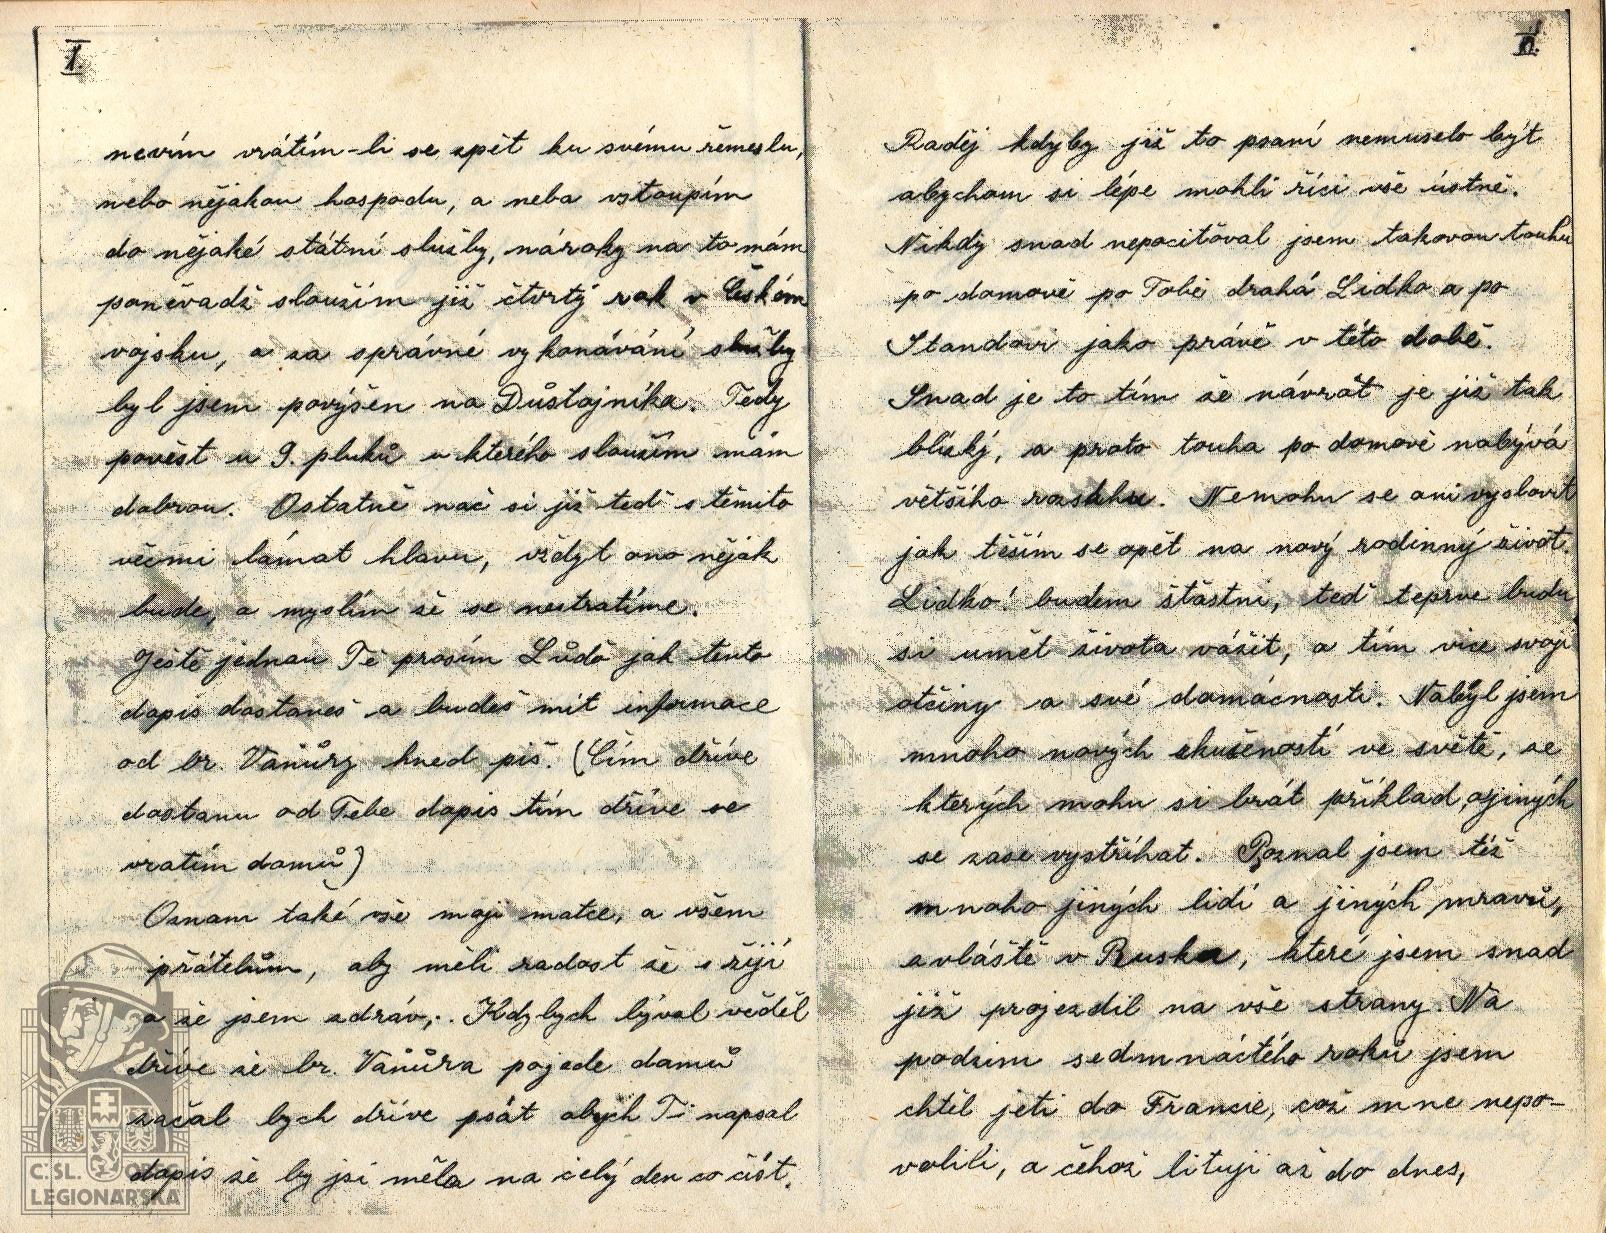 I.
nevím vrátím-li se zpět ku svému řemeslu,
nebo nějakou hospodu, a neba vstoupím
do nějaké státní služby, nároky na to mám
poněvadž sloužím již čtvrtý rok v Českém
vojsku, a za správné vykonávání služby
byl jsem povýšen na Důstojníka. Tedy
pověst u 9. pluků u kterého sloužím mám
dobrou. Ostatně nač si již teď s těmito
věcmi lámat hlavu, vždyt ono nějak
bude, a myslím že se neztratíme.
Ještě jednou Tě prosím Lůďo jak tento
dopis dostaneš a budeš mít informace
od br. Váňůry hned piš. (Čím dříve
dostanu od Tebe dopis tím dříve se
vratím domů)
Oznam také vše moji matce, a všem
přátelům, aby měli radost že s žiji
a že jsem zdráv,. Kdybych býval věděl
dříve že br. Váňůra pojede domů
začal bych dříve psát abych Ti napsal
dopis že by jsi měla na celý den co číst.
Raděj kdyby již to psaní nemuselo být
abychom si lépe mohli říci vše ústně.
Nikdy snad nepocitoval jsem takovou touhu
po domově po Tobě drahá Lidko a po
Standovi jako právě v této době.
Snad je to tím že návrat je již tak
blízký, a proto touha po domově nabývá
většího rozsahu. Nemohu se ani vyslovit
jak těším se opět na nový rodinný život.
Lidko! budem štastni, teď teprve budu
si umět života vážit, a tím vice svoji
otčiny a své domácnosti. Nabyl jsem
mnoho nových zkušeností ve světě, ze
kterých mohu si brát příklad, a jiných
se zase vystříhat. Poznal jsem též
mnoho jiných lidí a jiných mravů,
zvláště v Rusku, které jsem snad
již projezdil na vše strany. Na
podzim sedmnáctého roků jsem
chtěl jeti do Francie, což mne nepo-
volili, a čehož lituji až do dnes,
ČSL. OBEC
LEGIONÁŘSKÁ